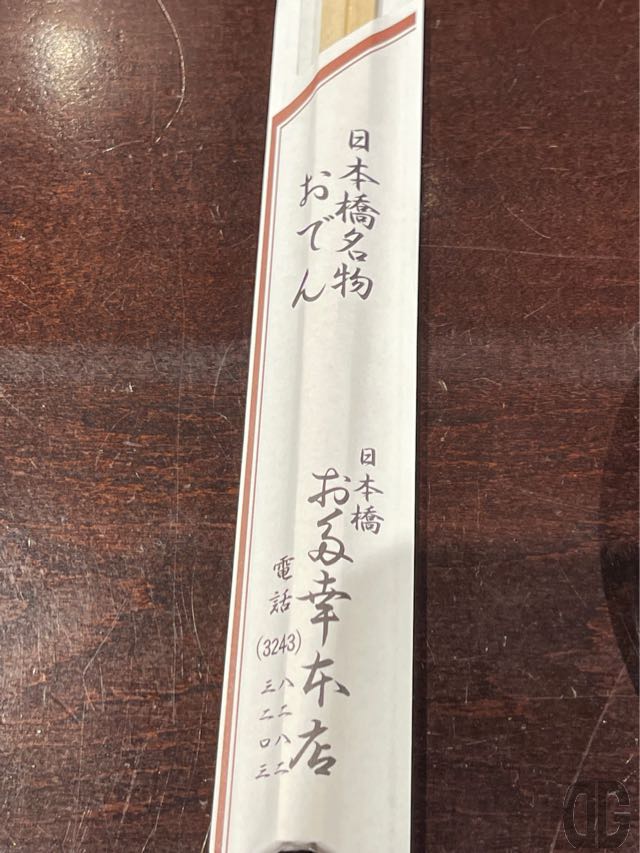 日本橋名物
おでん
日本橋
お多幸本店
電話
(3243)
八二八二
三二〇三